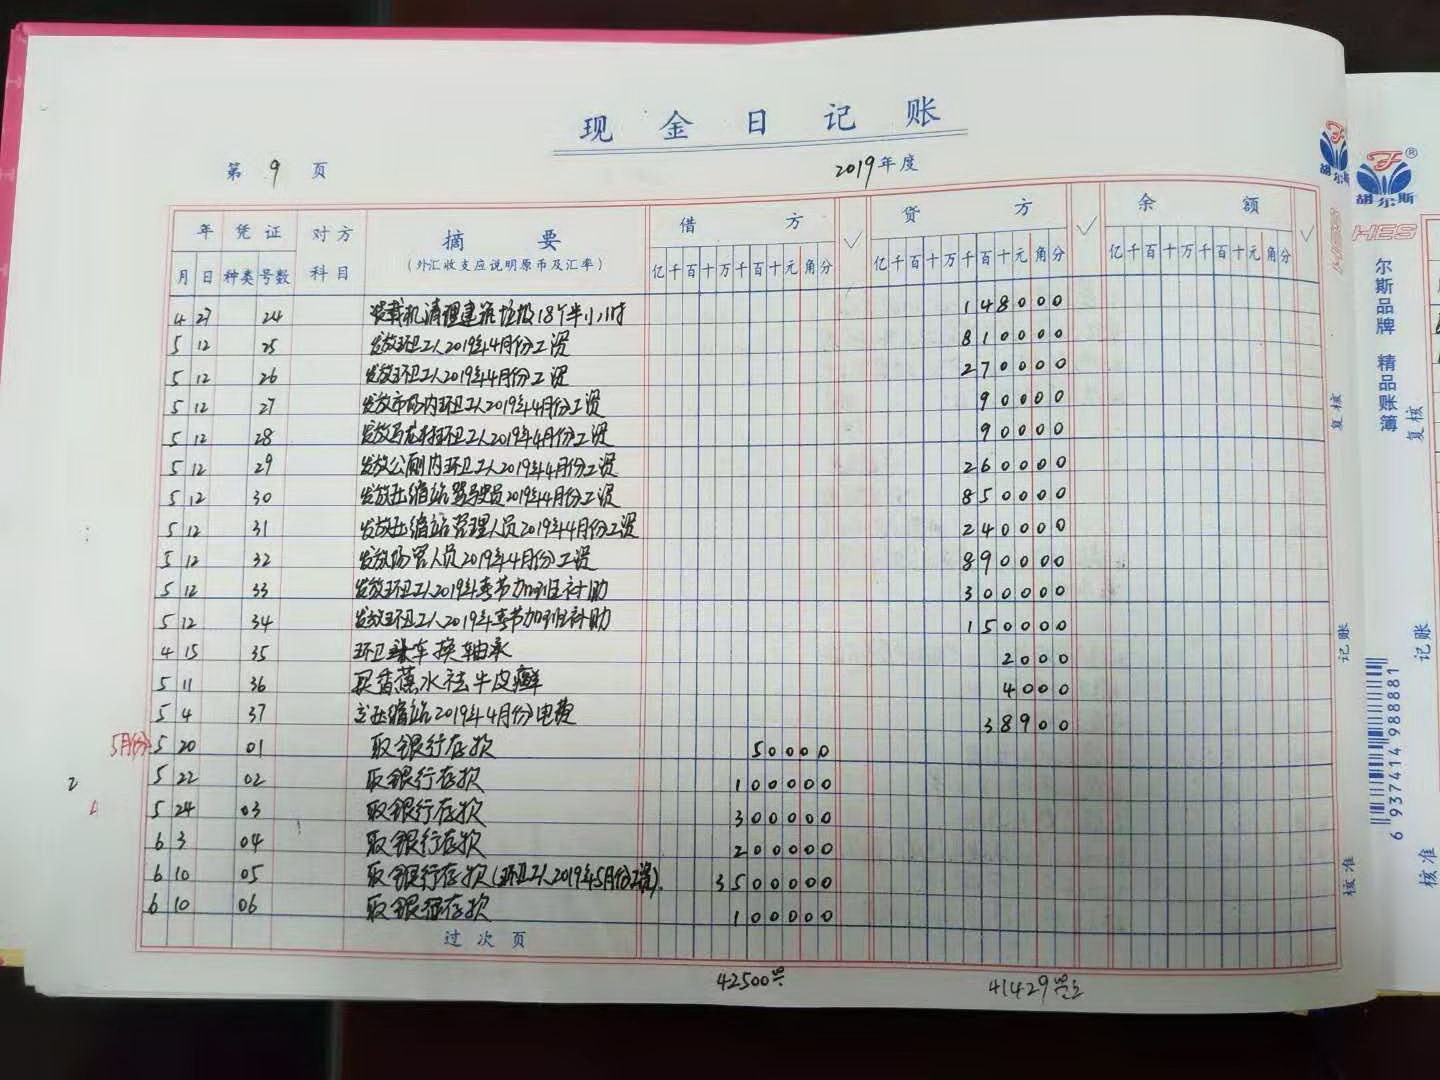 现金日记账
第 9 页 2019年度
年 凭证 对方 摘要 借方 ✓ 贷方 ✓ 余额 ✓
月 日 种类 号数 科目 (外汇收支应说明原币及汇率) 亿千百十万千百十元角分 亿千百十万千百十元角分 亿千百十万千百十元角分
4 27 24 装载机清理建筑垃圾18个半小时 148000
5 12 25 发放环卫工人2019年4月份工资 810000
5 12 26 发放环卫工人2019年4月份工资 270000
5 12 27 发放市场内环卫工人2019年4月份工资 90000
5 12 28 发放马龙村环卫工人2019年4月份工资 90000
5 12 29 发放公厕内环卫工人2019年4月份工资 260000
5 12 30 发放压缩站驾驶员2019年4月份工资 850000
5 12 31 发放压缩站管理人员2019年4月份工资 240000
5 12 32 发放场管人员2019年4月份工资 890000
5 12 33 发放环卫工人2019年春节加班补助 300000
5 12 34 发放环卫工人2019年春节加班补助 150000
4 15 35 环卫车换轴承 2000
5 11 36 买香蕉水祛牛皮癣 4000
5 4 37 压缩站2019年4月份电费 38900
5月份 5 20 01 取银行存款 50000
5 22 02 取银行存款 100000
5 24 03 取银行存款 300000
6 3 04 取银行存款 200000
6 10 05 取银行存款(环卫工人2019年5月份工资). 3500000
6 10 06 取银行存款 100000
过次页
42500.00 41429.00
复核
记账
核准
胡尔斯
HES
尔斯品牌 精品账簿
6 937414 988881
复核
记账
核准